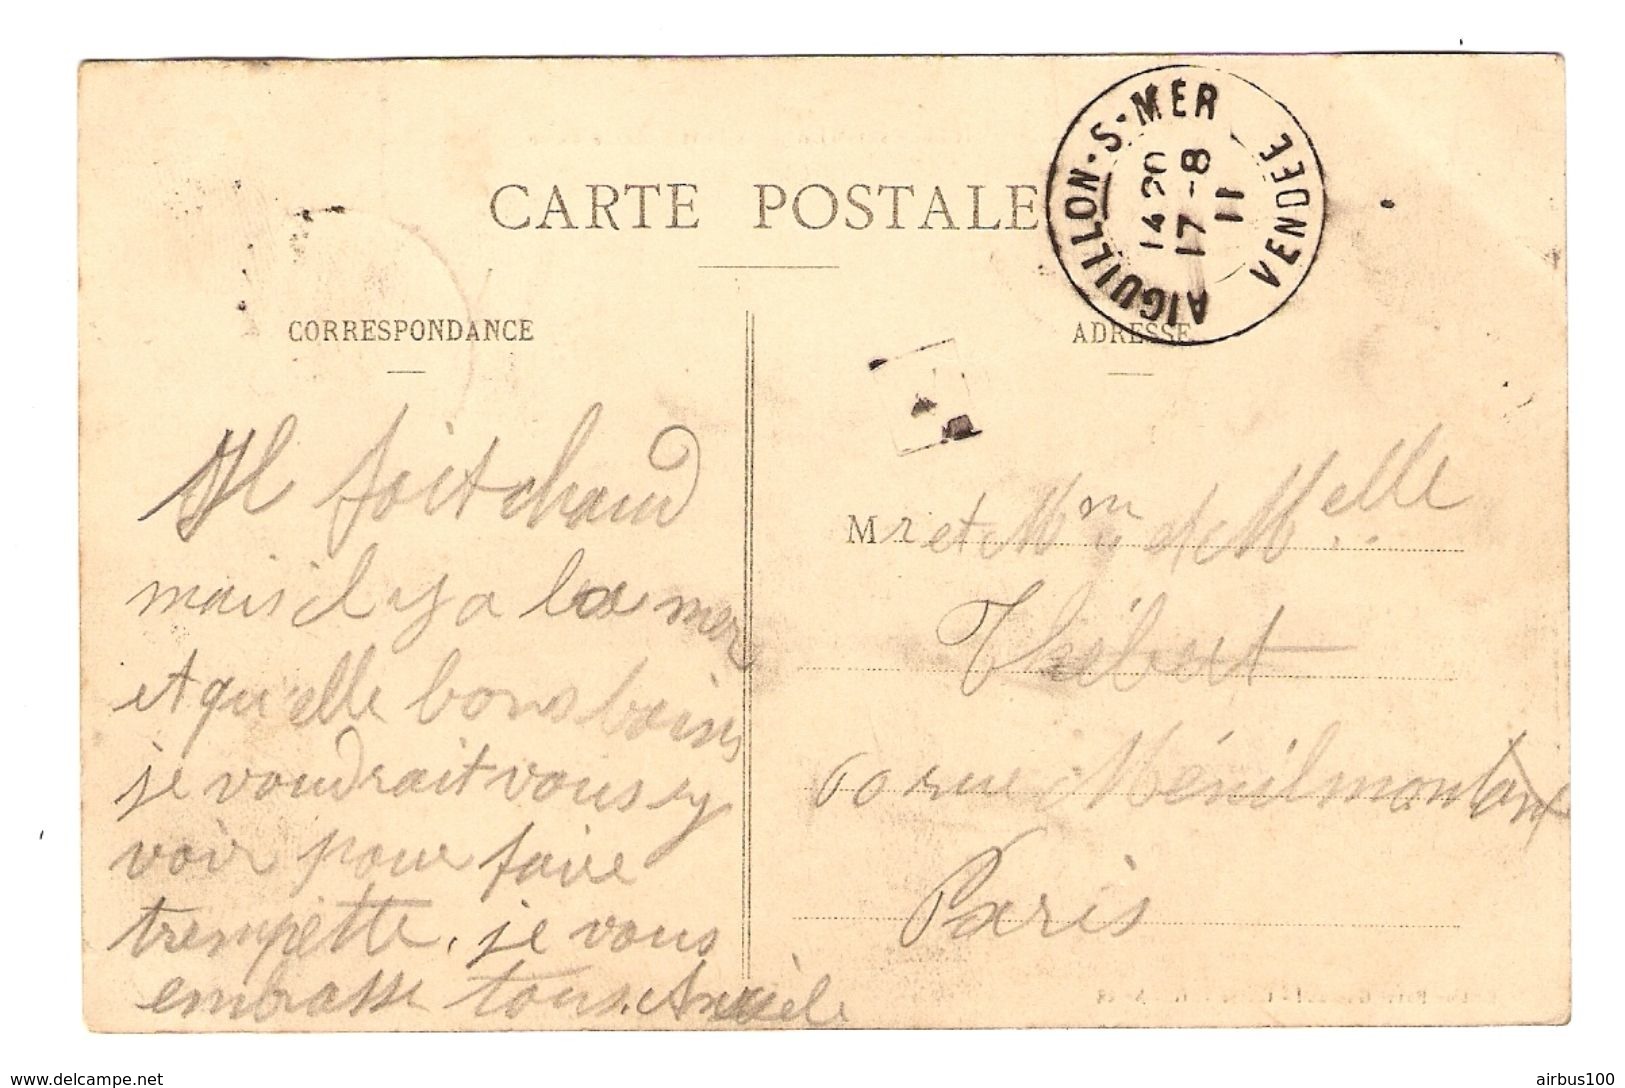 CARTE POSTALE
AIGUILLON-S-MER
14 20
17 -8
11
VENDEE
CORRESPONDANCE
Il fait chaud
mais il y a la mer
et qu'elle bons bains
je voudrait vous y
voir pour faire
trempette, je vous
embrasse tous.
ADRESSE
Mr et Mme et Melle
Thébert
60 rue Ménilmontant
Paris
www.delcampe.net
airbus100